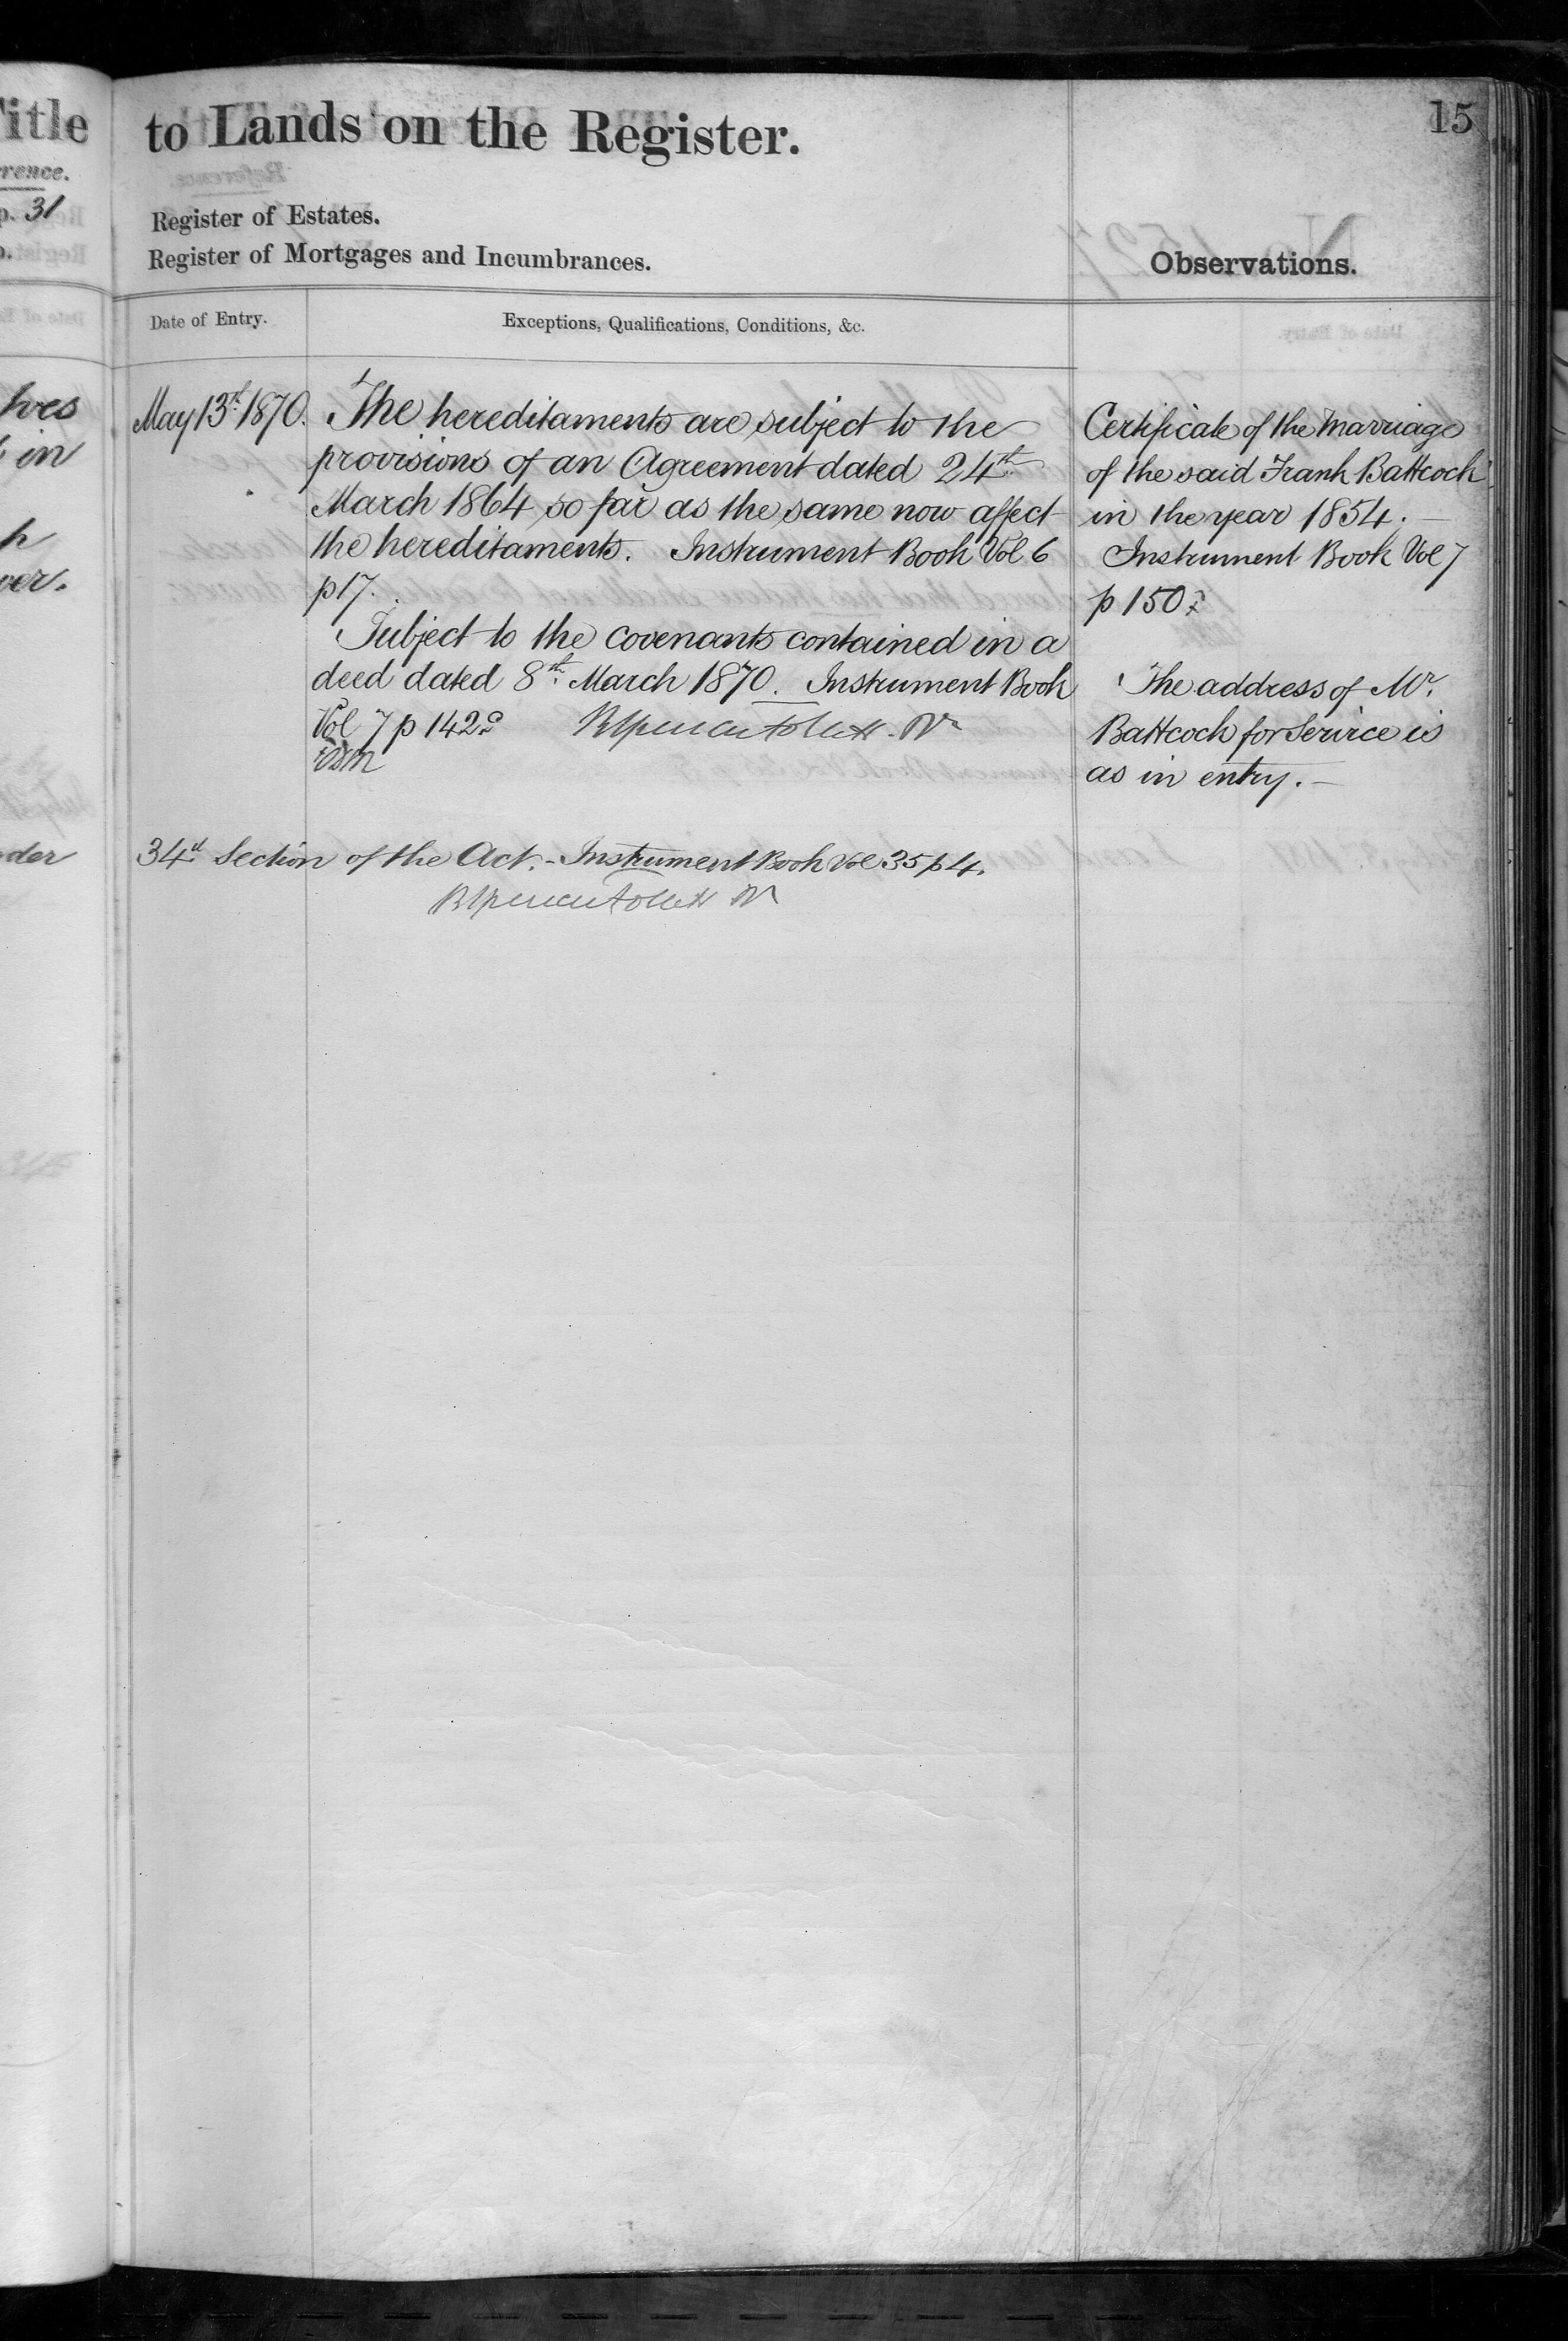 Title
to Lands on the Register.
15
p. 31
Register of Estates.
Register of Mortgages and Incumbrances.
Observations.
Date of Entry.
Exceptions, Qualifications, Conditions, &c.
May 13th 1870.
The hereditaments are subject to the
provisions of an Agreement dated 24th
March 1864 so far as the same now affect
the hereditaments. Instrument Book Vol 6
p 17.
Subject to the covenants contained in a
deed dated 8th March 1870. Instrument Book
Vol 7 p 142
34th Section of the Act. - Instrument Book Vol 35 p 4.
Certificate of the Marriage
of the said Frank Battcock
in the year 1854. —
Instrument Book Vol 7
p 150
The address of Mr.
Battcock for Service is
as in entry. —